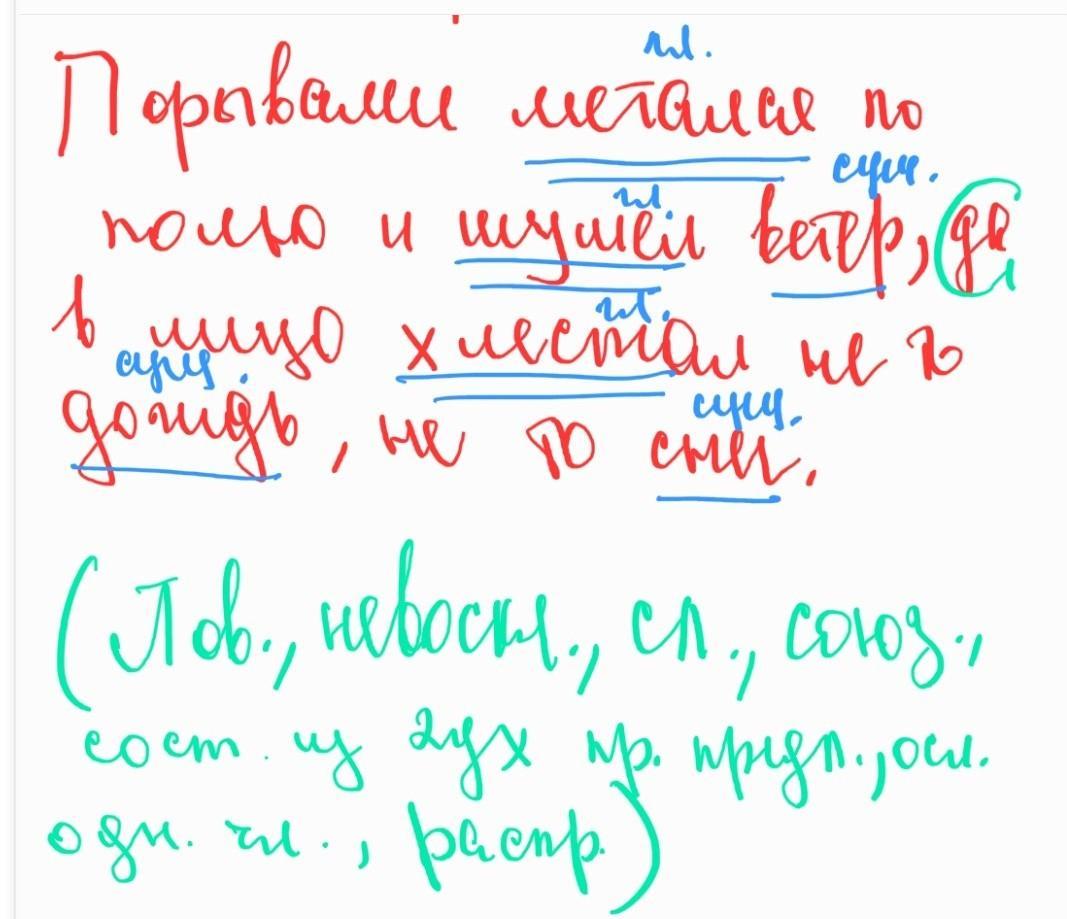 гл.
Порывами метался по
сущ.
гл.
полю и шумел ветер, да
гл.
в лицо хлестал не то
сущ.
сущ.
дождь, не то снег.
(Пов., невоскл., сл., союз.,
сост. из 2ух пр. предл., осл.
одн. чл., распр.)